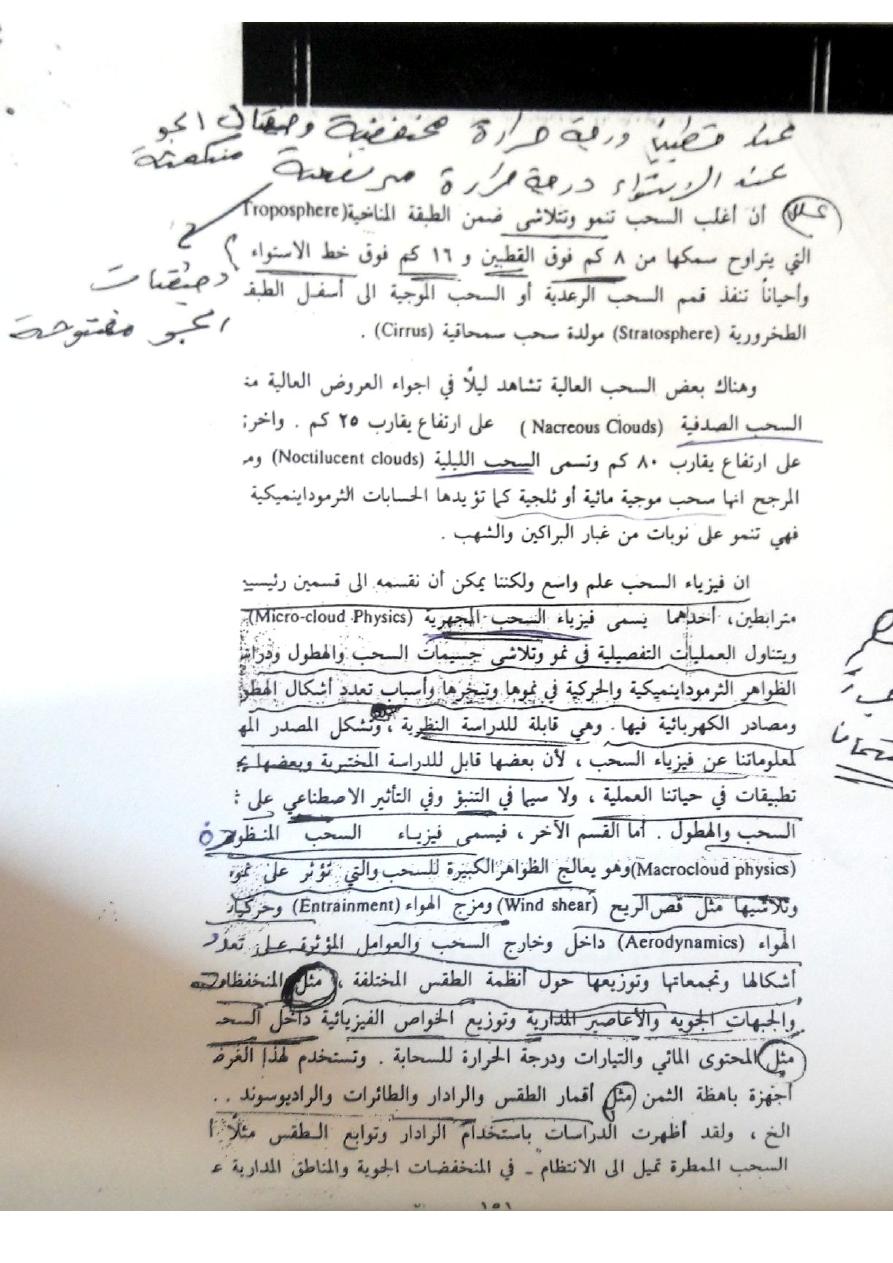 عند قطبين درجة حرارة منخفضة وجيقال الجو
منكمشة
عند الاستواء درجة حرارة مرتفعة
علل
أن أغلب السحب تنمو وتتلاشى ضمن الطبقة المناخية (Troposphere
التي يتراوح سمكها من ٨ كم فوق القطبين و ١٦ كم فوق خط الاستواء
وأحياناً تنفذ قمم السحب الرعدية أو السحب الموجية الى أسفل الطبقـ
الجو مفتوحة
الطخرورية (Stratosphere) مولدة سحب سمحاقية (Cirrus) .
وهناك بعض السحب العالية تشاهد ليلًا في اجواء العروض العالية منـ
السحب الصدفية (Nacreous Clouds ) على ارتفاع يقارب ٢٥ كم . واخرى
على ارتفاع يقارب ٨٠ كم وتسمى السحب الليلية (Noctilucent clouds) ومـ
المرجح انها سحب موجية مائية أو ثلجية كما تؤيدها الحسابات الثرموداينميكية
فهي تنمو على نوبات من غبار البراكين والشهب .
ان فيزياء السحب علم واسع ولكننا يمكن أن نقسمه الى قسمين رئيسيـ
مترابطين، أحدهما يسمى فيزياء السحب المجهرية (Micro-cloud Physics)
ويتناول العمليات التفصيلية في نمو وتلاشى جسيمات السحب والهطول ودراسـ
الظواهر الثرموداينميكية والحركية في نموها وتبخرها وأسباب تعدد أشكال الهطو
ومصادر الكهربائية فيها. وهي قابلة للدراسة النظرية ، وتشكل المصدر المهـ
لمعلوماتنا عن فيزياء السحب ، لأن بعضها قابل للدراسة المختبرية وبعضها يجـ
تطبيقات في حياتنا العملية ، ولا سيما في التنبؤ وفي التأثير الاصطناعي على
السحب والهطول . أما القسم الآخر ، فيسمى فيزياء السحب المنظورة
(Macrocloud physics) وهو يعالج الظواهر الكبيرة للسحب والتي تؤثر على نموه
وتلاشيها مثل قص الريح (Wind shear) ومزج الهواء (Entrainment) وحركيات
الهواء (Aerodynamics) داخل وخارج السحب والعوامل المؤثرة على تعدد
أشكالها وتجمعاتها وتوزيعها حول أنظمة الطقس المختلفة ، مثل المنخفظات
والجبهات الجوية والأعاصير المدارية وتوزيع الخواص الفيزيائية داخل السحـ
مثل المحتوى المائي والتيارات ودرجة الحرارة للسحابة . وتستخدم لهذا الغرض
أجهزة باهظة الثمن مثل أقمار الطقس والرادار والطائرات والراديوسوند . .
الخ ، ولقد أظهرت الدراسات باستخدام الرادار وتوابع الطقس مثلًا أ
السحب الممطرة تميل الى الانتظام - في المنخفضات الجوية والمناطق المدارية عـ
١٥١